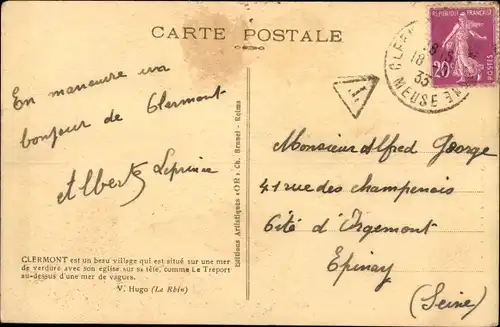 CARTE POSTALE
RÉPUBLIQUE FRANÇAISE
20c
POSTES
18
33
MEUSE
T
En manœuvre un
bonjour de Clermont
Albert Leprince
CLERMONT est un beau village qui est situé sur une mer
de verdure avec son église sur sa tête, comme Le Tréport
au-dessus d'une mer de vagues.
V. Hugo (Le Rhin)
Editions Artistiques «OR» Ch. Brunel - Reims
Monsieur Alfred George
41 rue des champenois
Cité d'Orgemont
Epinay
(Seine)